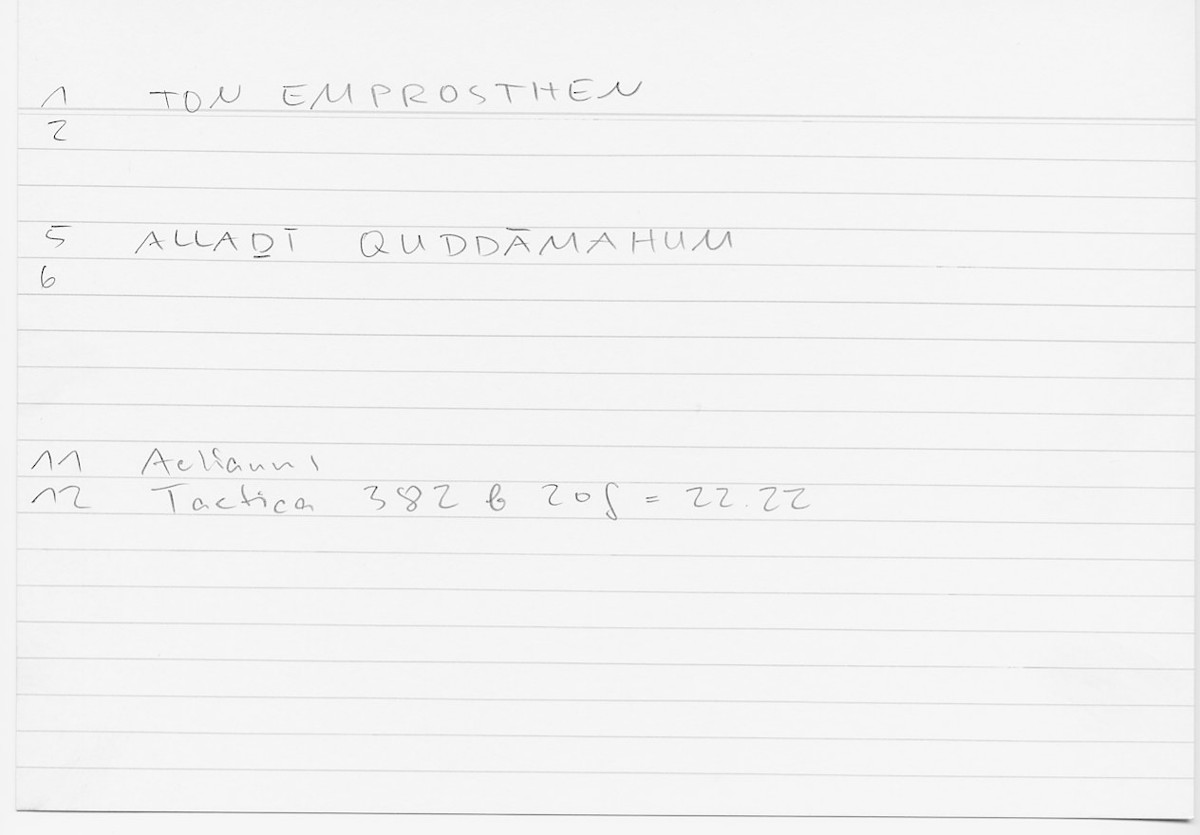 1 TON EMPROSTHEN
2
5 ALLAḎĪ QUDDĀMAHUM
6
11 Aelianus
12 Tactica 382 b 20f = 22.22